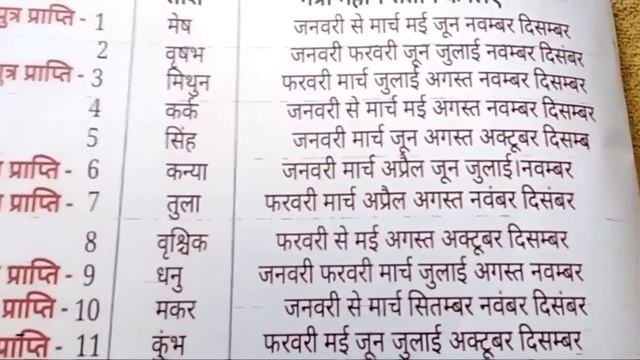 पुत्र प्राप्ति - 1 मेष जनवरी से मार्च मई जून नवम्बर दिसम्बर
2 वृषभ जनवरी फरवरी जून जुलाई नवम्बर दिसंबर
पुत्र प्राप्ति - 3 मिथुन फरवरी मार्च जुलाई अगस्त नवम्बर दिसम्बर
4 कर्क जनवरी से मार्च मई अगस्त नवम्बर दिसम्बर
5 सिंह जनवरी मार्च जून अगस्त अक्टूबर दिसम्ब
प्राप्ति - 6 कन्या जनवरी मार्च अप्रैल जून जुलाई नवम्बर
प्राप्ति - 7 तुला फरवरी मार्च अप्रैल अगस्त नवंबर दिसंबर
8 वृश्चिक फरवरी से मई अगस्त अक्टूबर दिसम्बर
प्राप्ति - 9 धनु जनवरी फरवरी मार्च जुलाई अगस्त नवम्बर
प्राप्ति - 10 मकर जनवरी से मार्च सितम्बर नवंबर दिसंबर
प्राप्ति - 11 कुंभ फरवरी मई जून जुलाई अक्टूबर दिसम्बर